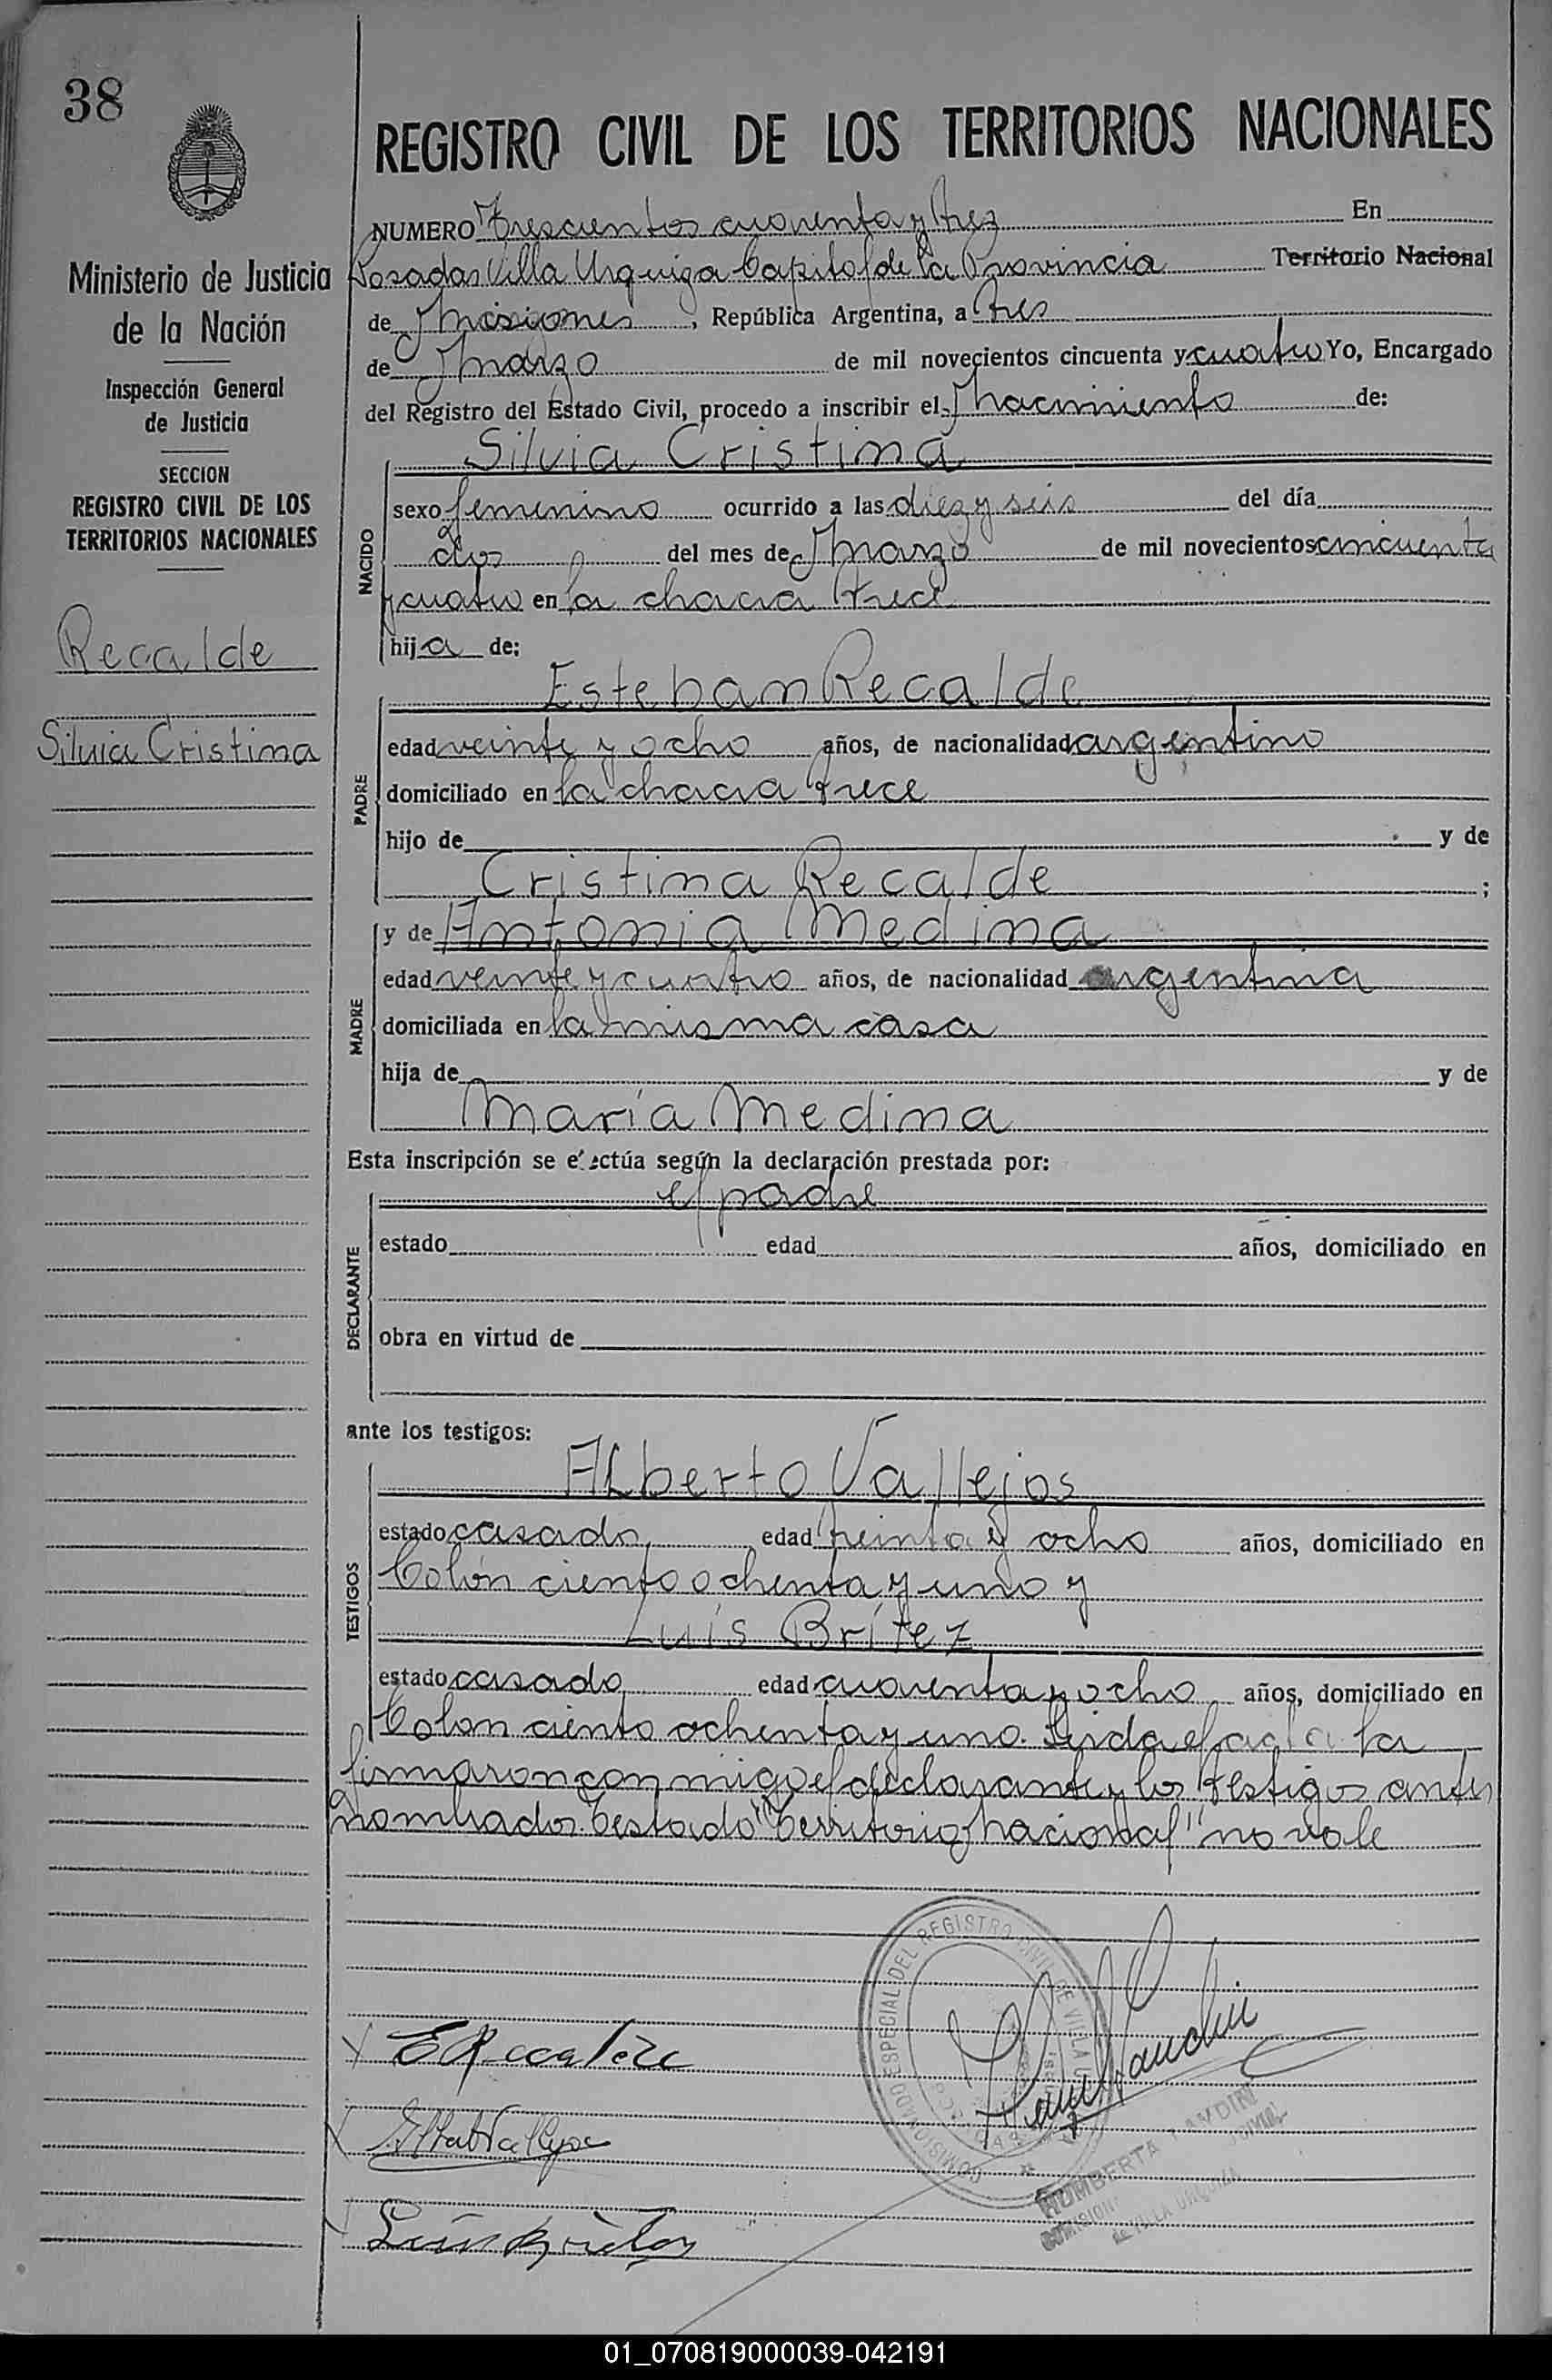 38
REGISTRO CIVIL DE LOS TERRITORIOS NACIONALES
Ministerio de Justicia
de la Nación
Inspección General
de Justicia
SECCION
REGISTRO CIVIL DE LOS
TERRITORIOS NACIONALES
Recalde
Silvia Cristina
NUMERO Trescientos cuarenta y tres En
Posadas Villa Urquiza Capital de la Provincia Territorio Nacional
de Misiones, República Argentina, a tres
de Marzo de mil novecientos cincuenta y cuatro Yo, Encargado
del Registro del Estado Civil, procedo a inscribir el nacimiento de:
Silvia Cristina
NACIDO
sexo femenino ocurrido a las diez y seis del día
dos del mes de Marzo de mil novecientos cincuenta
y cuatro en la chacra trece
hija de:
Esteban Recalde
PADRE
edad veinte y ocho años, de nacionalidad argentino
domiciliado en la chacra trece
hijo de y de
Cristina Recalde ;
MADRE
y de Antonia Medina
edad veinte y cuatro años, de nacionalidad argentina
domiciliada en la misma casa
hija de y de
María Medina
Esta inscripción se efectúa según la declaración prestada por:
DECLARANTE
el padre
estado edad años, domiciliado en
obra en virtud de
ante los testigos:
TESTIGOS
Alberto Vallejos
estado casado, edad treinta y ocho años, domiciliado en
Colón ciento ochenta y uno y
Luis Brítez
estado casado, edad cuarenta y ocho, años, domiciliado en
Colon ciento ochenta y uno. Leida el acta la
firmaron conmigo el declarante y los testigos antes
nombrados. Testado "Territorio Nacional" no vale
COMISIONADO ESPECIAL DEL REGISTRO CIVIL DE VILLA
E Recalde
Luis Britez
HUMBERTA
DE VILLA URQUIZA
01_070819000039-042191